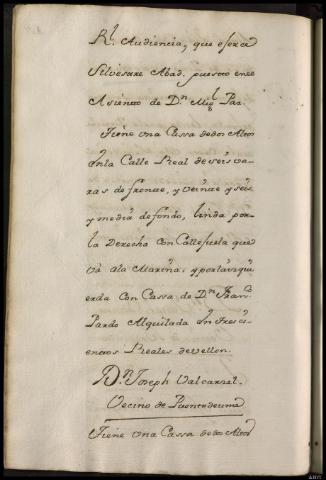 Rl. Audiencia, que eserce
Silvestre Abad, puesto en el
Asiento de Dn. Migl. Paz
Tiene una Cassa de dos Altos
En la Calle Real de seis va-
ras de frente, y veinte y seis
y media de fondo, linda por
la Derecha con Callejuela que
vá ala Marina, y por la izqui
erda con Cassa de Dn. Franco.
Pardo Alquilada En tresci-
entos Reales de vellon.
Dn. Joseph Valcarcel
Vecino de Puentedeume
Tiene una Cassa de dos Altos